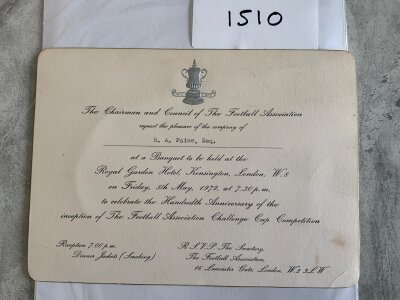 1510
The Chairman and Council of The Football Association
request the pleasure of the company of
R. A. Paine, Esq.
at a Banquet to be held at the
Royal Garden Hotel, Kensington, London, W.8
on Friday, 5th May, 1972, at 7.30 p.m.
to celebrate the Hundredth Anniversary of the
inception of The Football Association Challenge Cup Competition
Reception 7.00 p.m.
Dinner Jackets (Smoking)
R.S.V.P. The Secretary,
The Football Association,
16 Lancaster Gate, London, W2 3LW